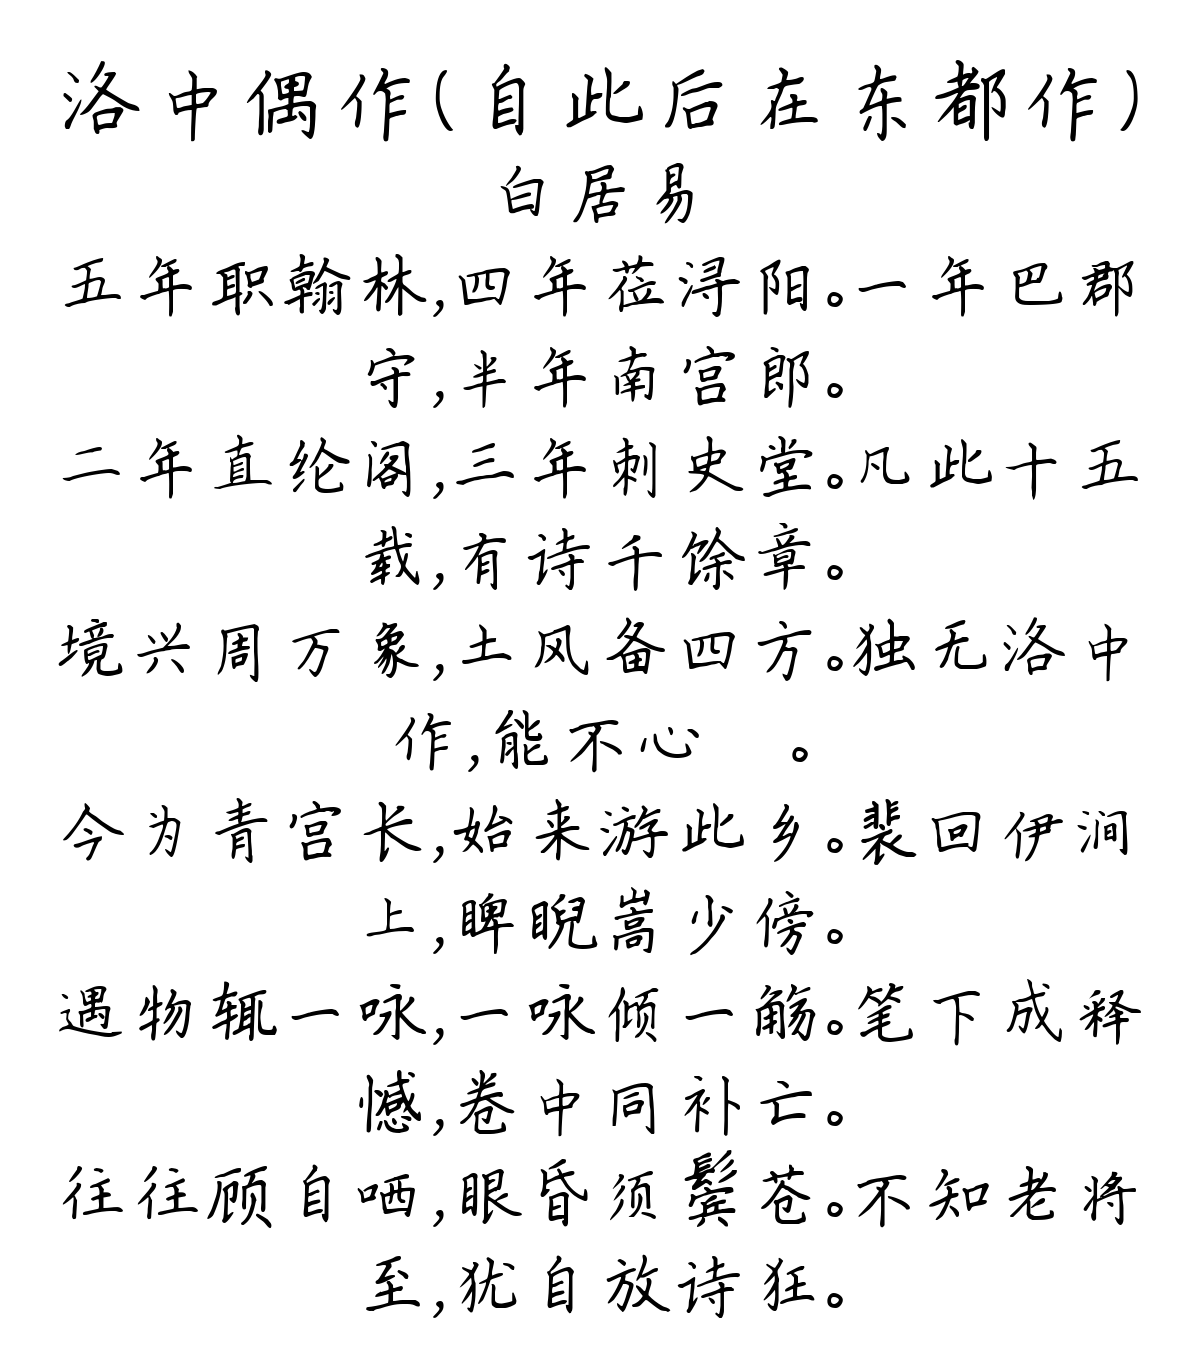 洛中偶作(自此后在东都作)
白居易
五年职翰林,四年莅浔阳。一年巴郡
守,半年南宫郎。
二年直纶阁,三年刺史堂。凡此十五
载,有诗千馀章。
境兴周万象,土风备四方。独无洛中
作,能不心 。
今为青宫长,始来游此乡。裴回伊涧
上,睥睨嵩少傍。
遇物辄一咏,一咏倾一觞。笔下成释
憾,卷中同补亡。
往往顾自哂,眼昏须鬓苍。不知老将
至,犹自放诗狂。